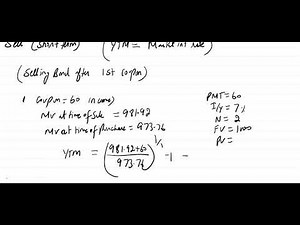 Sell (Short term) (YTM = Market int rate)
(Selling Bond after 1st coupon)
1 Coupon = 60 income)
MV at time of Sale = 981.92
MV at time of Purchase = 973.76
YTM = ((981.92+60)/973.76)^1/1 -1 =
PMT = 60
I/Y = 7%
N = 2
FV = 1000
PV =